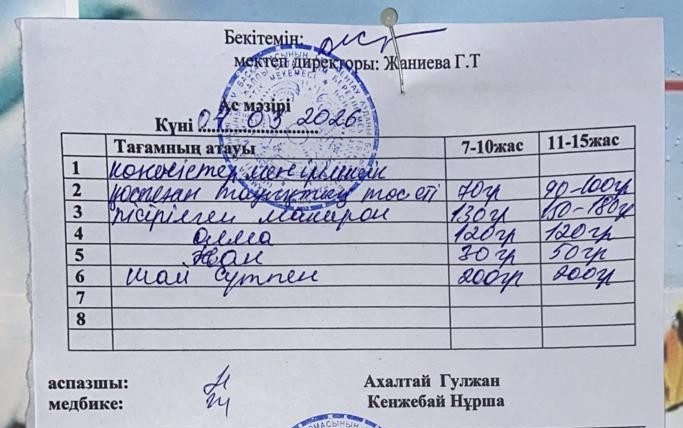 Бекітемін:
мектеп директоры: Жаниева Г.Т
Ас мәзірі
Күні 04 03 2026
Тағамның атауы 7-10жас 11-15жас
1 көкөністермен
2 тауықтың төс еті 70гр 90-100гр
3 пісірілген макарон 130гр 150-180гр
4 алма 120гр 120гр
5 нан 30гр 50гр
6 шай сүтпен 200гр 200гр
7
8
аспазшы: Ахалтай Гулжан
медбике: Кенжебай Нұрша